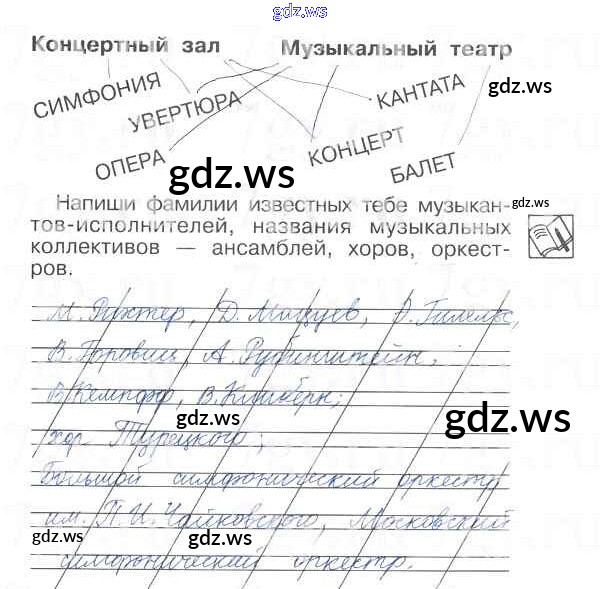 gdz.ws
Концертный зал Музыкальный театр
СИМФОНИЯ УВЕРТЮРА КАНТАТА gdz.ws
ОПЕРА КОНЦЕРТ БАЛЕТ
gdz.ws
Напиши фамилии известных тебе музыкан- gdz.ws
тов-исполнителей, названия музыкальных
коллективов — ансамблей, хоров, оркест-
ров.
gdz.ws
М. Рихтер, Д. Мацуев, Э. Гилельс,
В. Горовиц, А. Рубинштейн;
В. Кемпфф, В. Клиберн;
gdz.ws gdz.ws
хор Турецкого;
Большой симфонический оркестр
им. П. И. Чайковского, Московский
gdz.ws gdz.ws
симфонический оркестр.